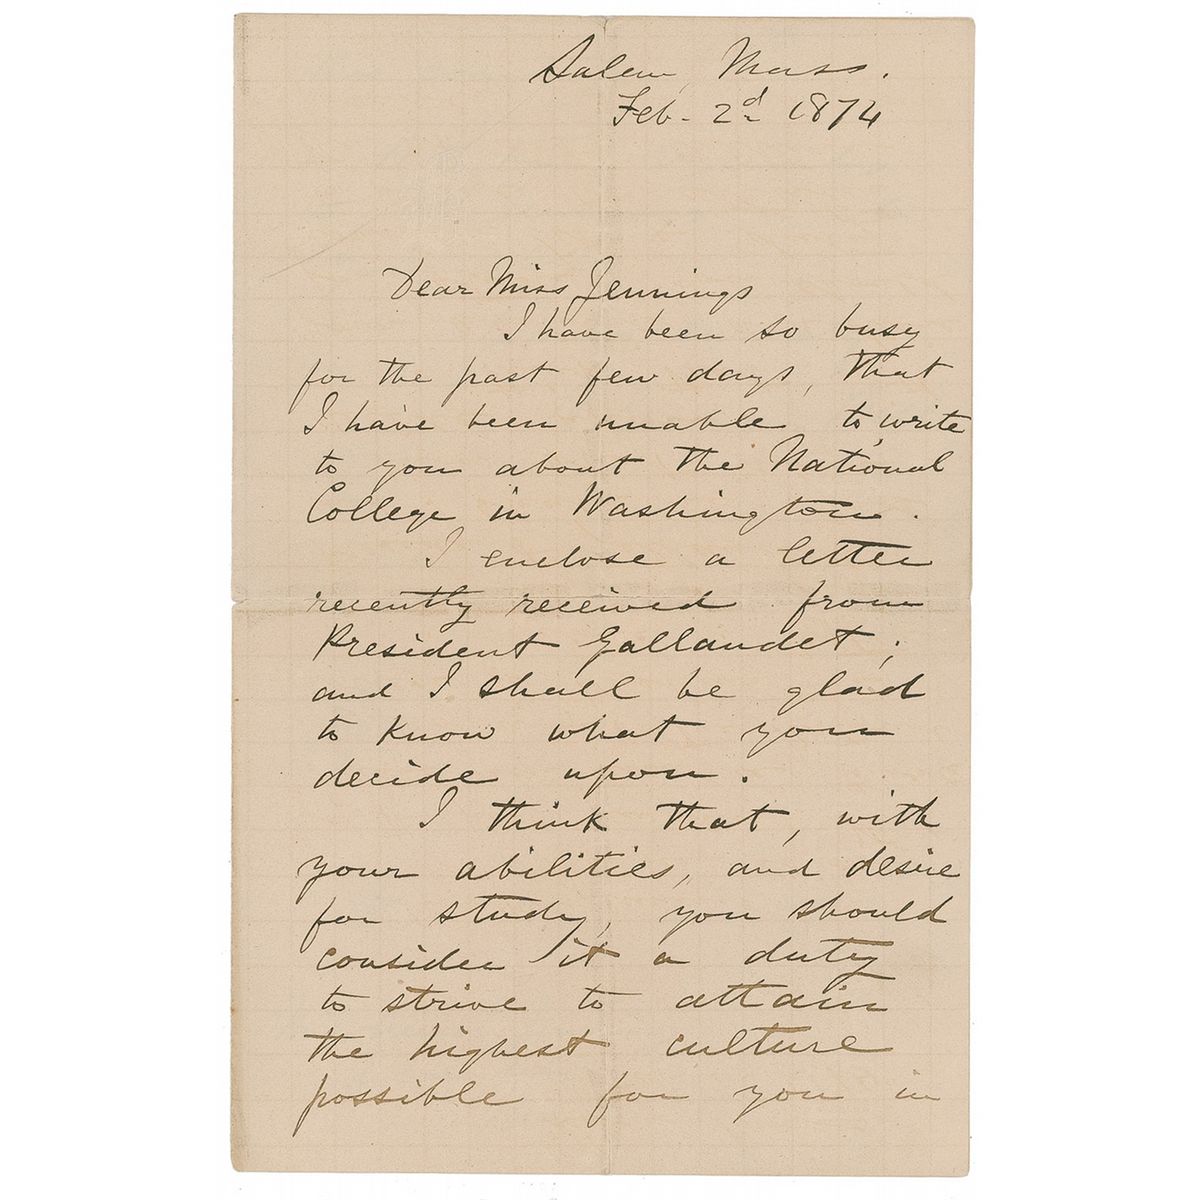 Salem, Mass.
Feb. 2d 1874
Dear Miss Jennings
I have been so busy
for the past few days, that
I have been unable to write
to you about the National
College in Washington.
I enclose a letter
recently received from
President Gallaudet;
and I shall be glad
to know what you
decide upon.
I think that, with
your abilities, and desire
for study, you should
consider it a duty
to strive to attain
the highest culture
possible for you in